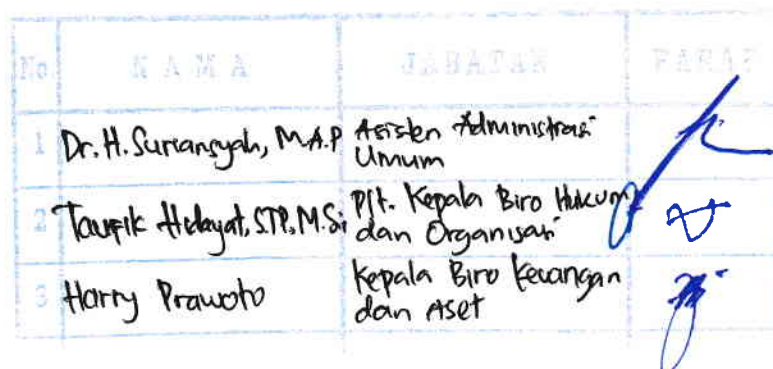 No. NAMA JABATAN PARAF
1 Dr. H. Suriansyah, M.A.P Asisten Administrasi
Umum
2 Taufik Hidayat, STP, M.Si Plt. Kepala Biro Hukum
dan Organisasi
3 Harry Prawoto Kepala Biro Keuangan
dan Aset